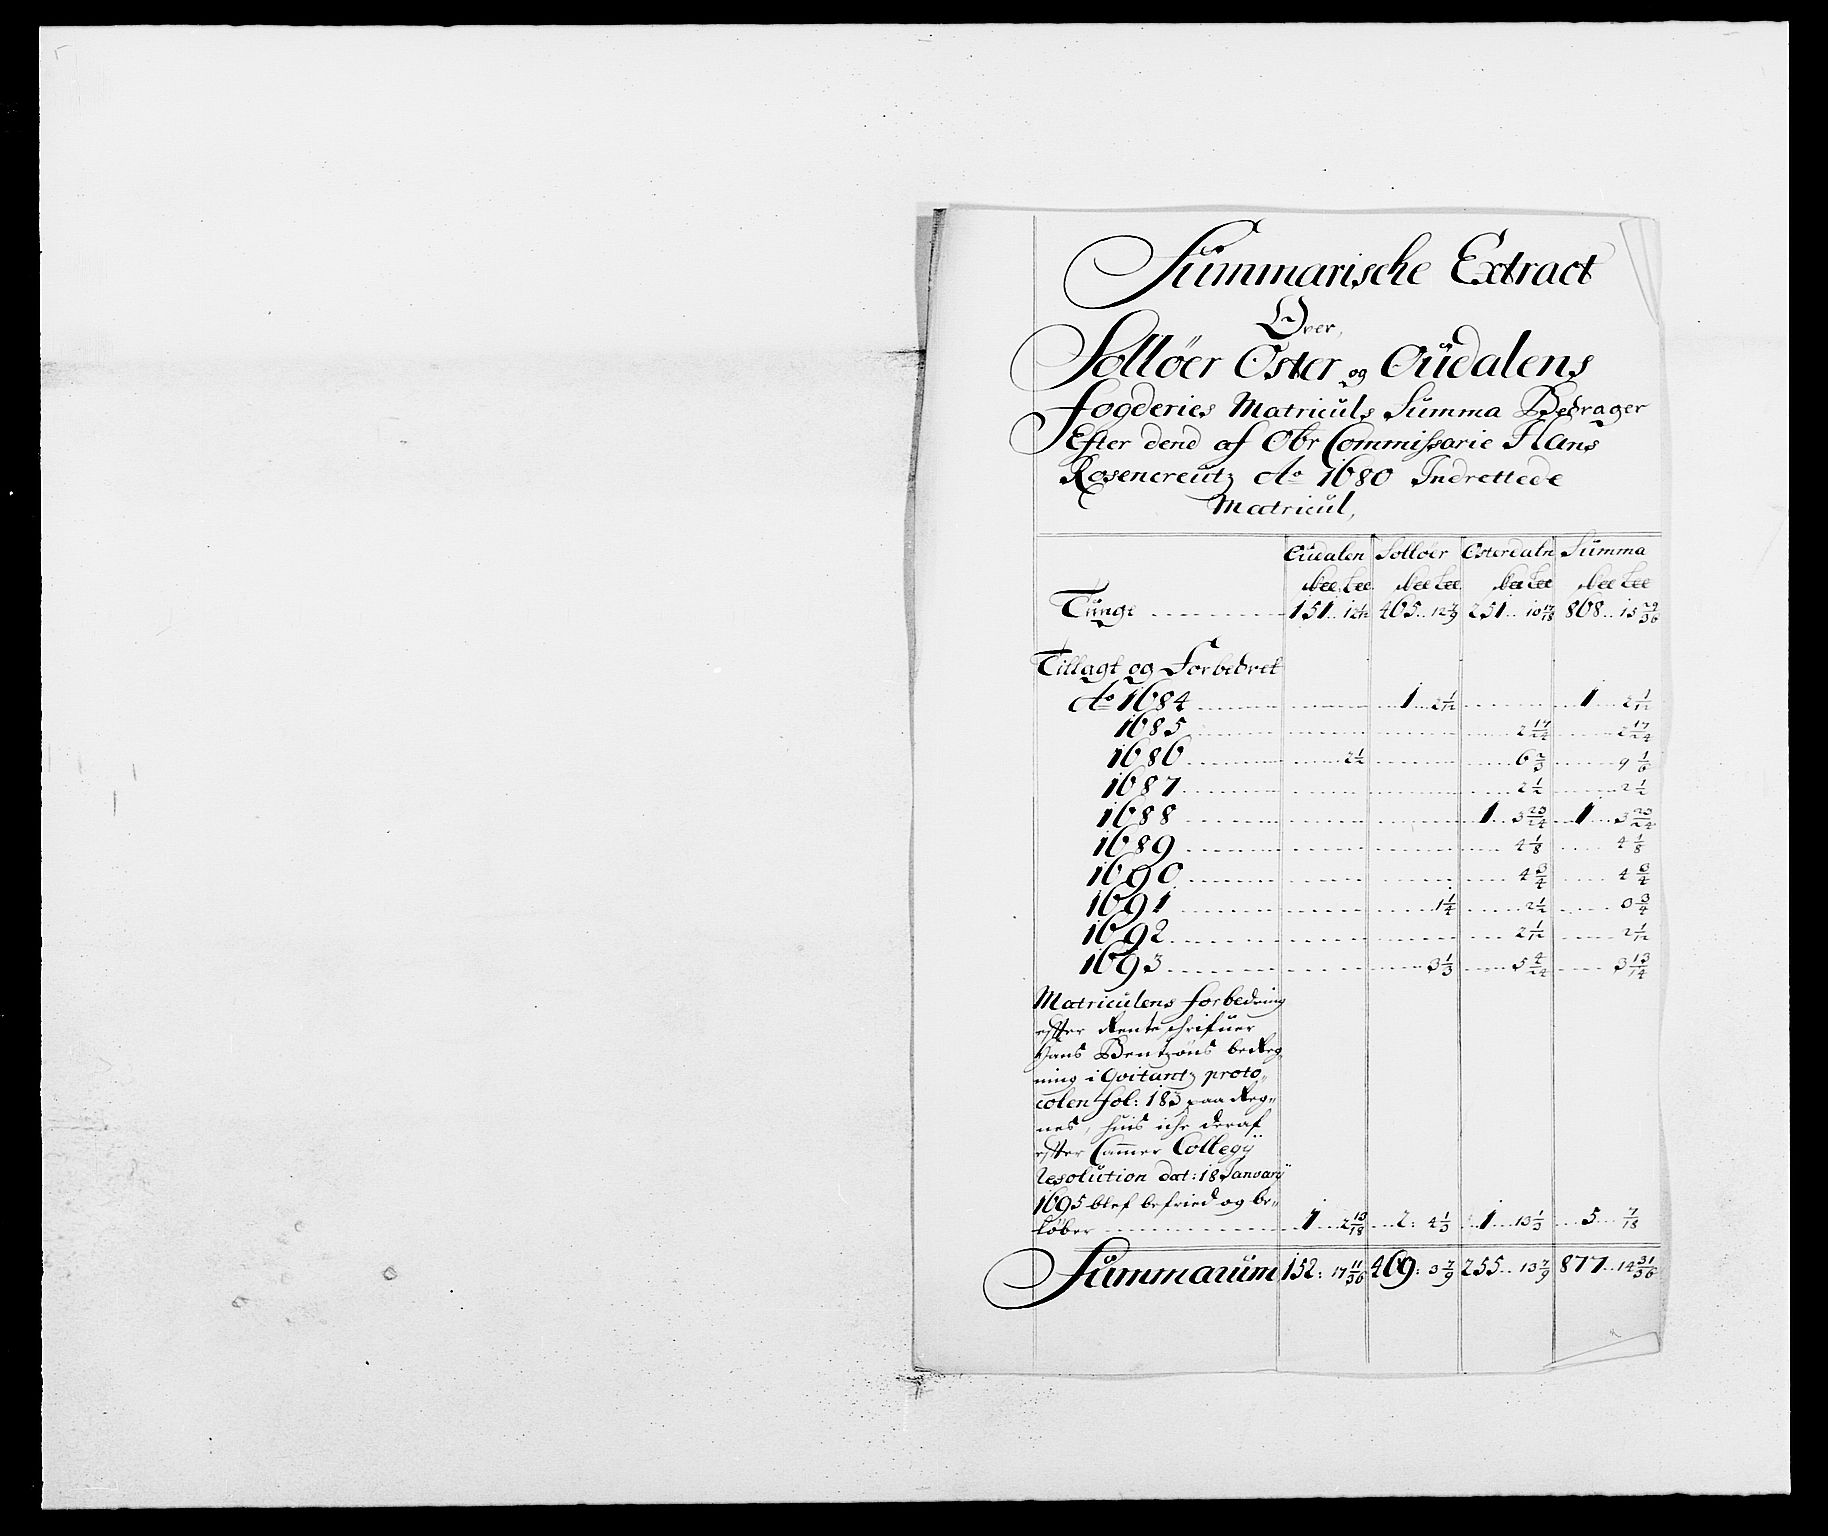 Summarische Extract
Over,
Solløer Öster og Oüdalens
fogderies Matriculs Summa Bedrager
Efter dend af Obr Commissarie Hans
Rosencreutz Ao 1680 Indrettede
Matricul,
Oüdalen Solløer Österdaln Summa
Tünge 151 12 1/12 465 12 7/9 251 10 17/18 868 15 29/36
Tillagt og Forbedret
Ao 1684 1 2 1/12 1 2 1/12
1685 2 17/24 2 17/24
1686 2 1/2 6 2/3 9 1/6
1687 2 1/2 2 1/2
1688 1 3 23/24 1 3 23/24
1689 4 1/8 4 1/8
1690 4 3/4 4 3/4
1691 1 1/4 2 1/2 3 3/4
1692 2 1/12 2 1/12
1693 3 1/3 5 4/24
Matriculens forbedring
effter Renteschrifuer
Hans Bentzøns bereg
ning i Qvitantz proto„
colen fol: 183 paa Reg„
nes, huis iche deraf
effter Cammer Collegÿ
Resolution dat: 18 Januarÿ
1695 blef befried og be„
løber 1 2 13/18 2: 4 1/3 1 13 1/3 5 7/18
Summarum 152: 17 11/36 469: 3 7/9 255 13 7/9 877 14 31/36